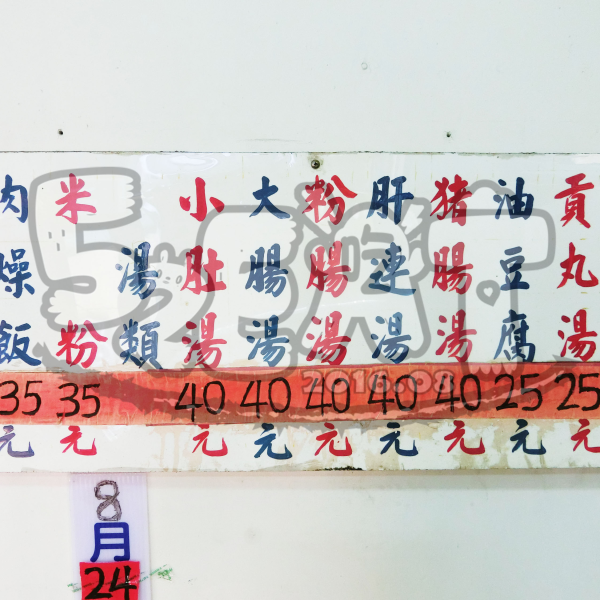 肉燥飯 35元
米粉 35元
湯類
小肚湯 40元
大腸湯 40元
粉腸湯 40元
肝連湯 40元
豬腸湯 40元
油豆腐 25元
貢丸湯 25元
8月
24
2016.08